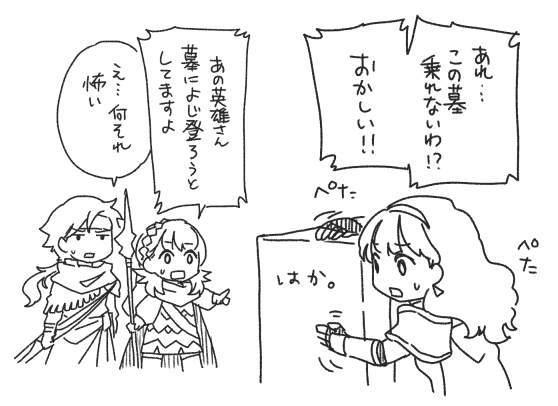 あれ…
この墓
乗れないわ!?
おかしい!!
ぺた
ぺた
はか。
あの英雄さん
墓によじ登ろうと
してますよ
え…何それ
怖い